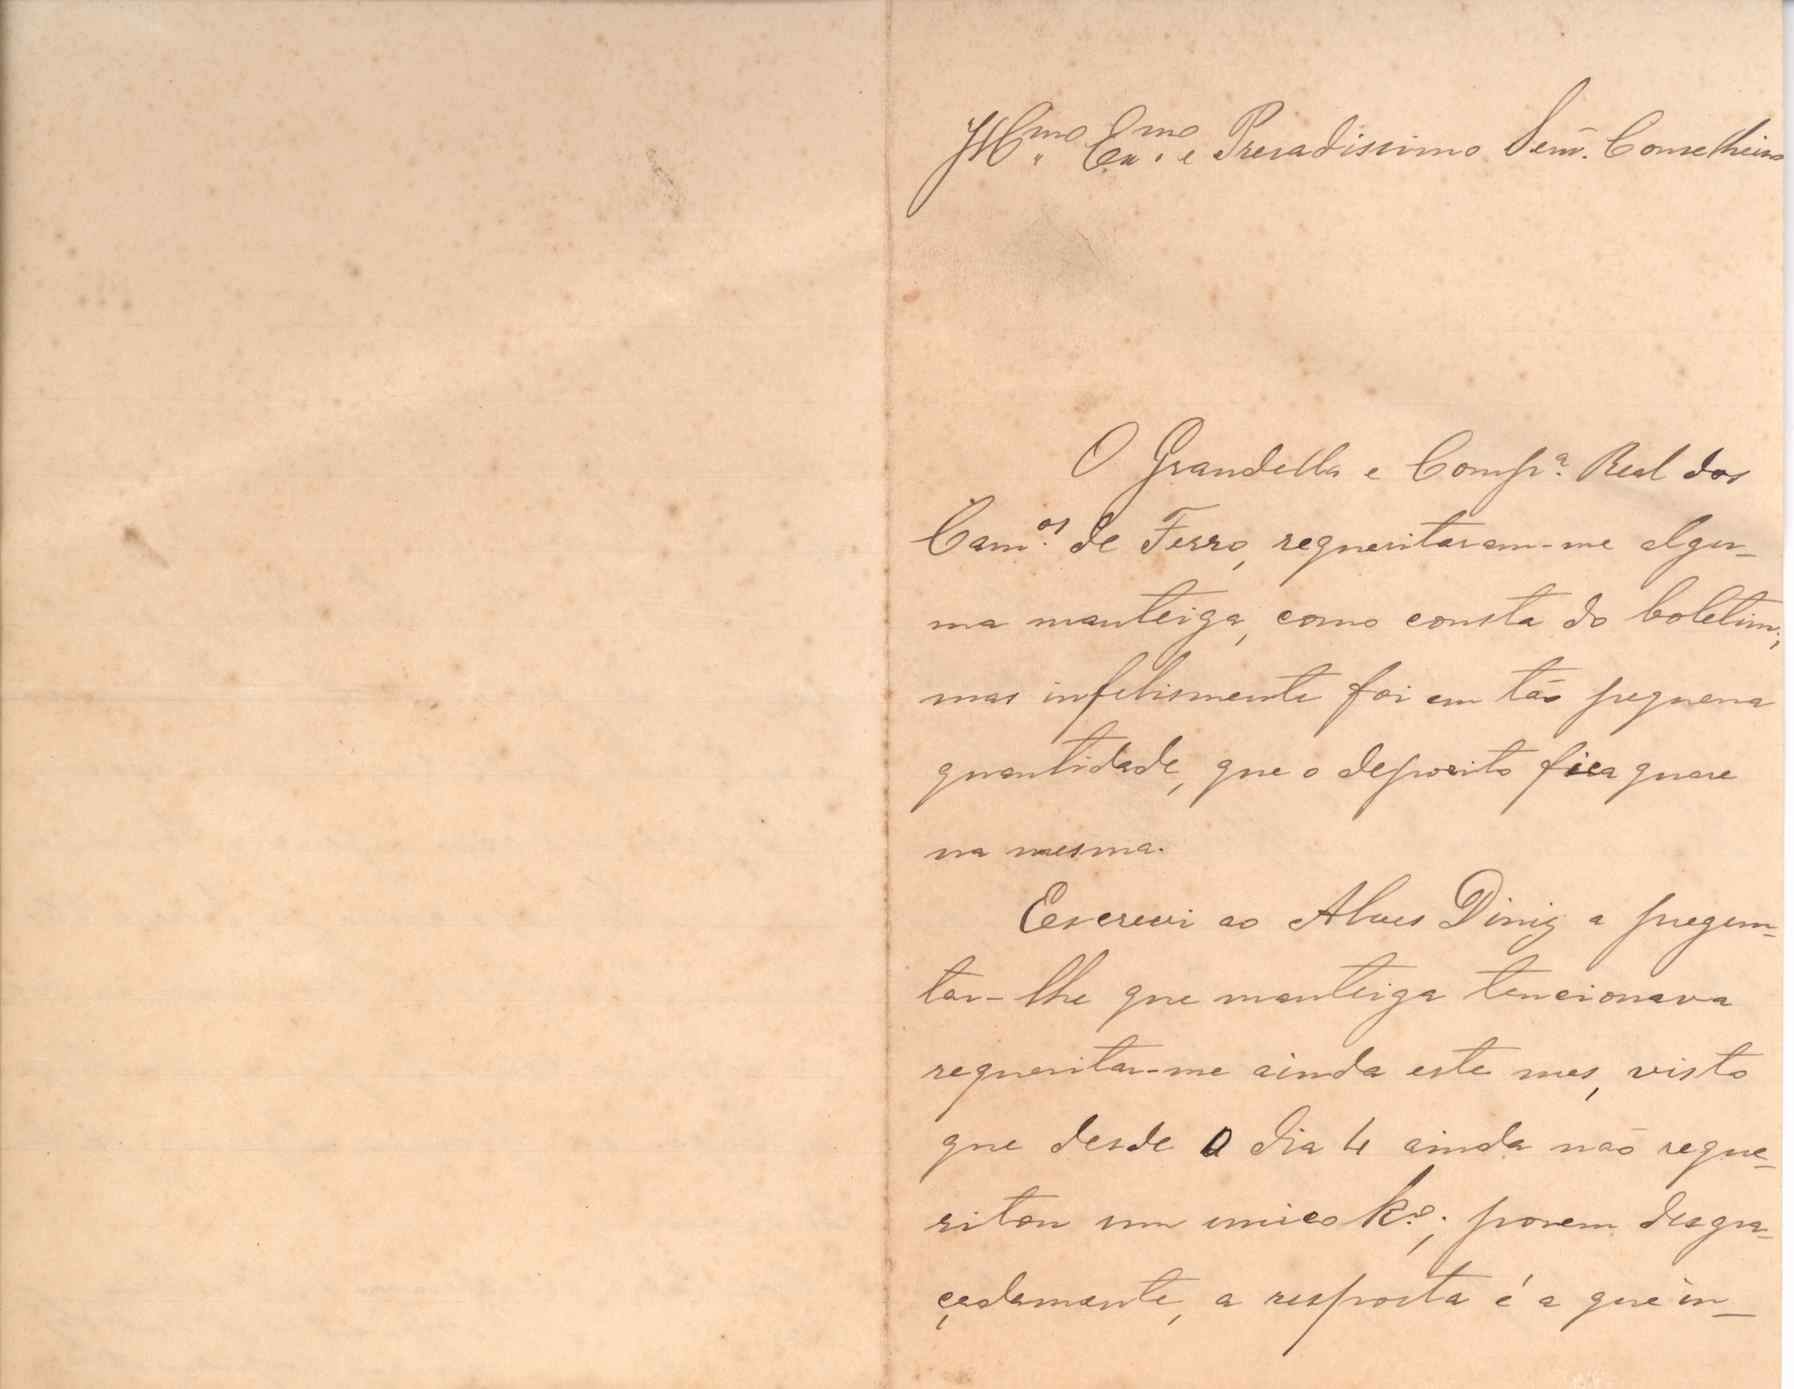 Illmo. Exmo. e Presadissimo Senr. Conselheiro
O Grandella e Compª. Real dos
Cam.os de Ferro, requesitaram-me algu-
ma manteiga, como consta do boletim;
mas infelismente foi em tão pequena
quantidade, que o deposito fica quase
na mesma.
Escrevi ao Alves Diniz a pregun-
tar-lhe que manteiga tencionava
requesitar-me ainda este mes, visto
que desde o dia 4 ainda não reque-
sitou um unico k.o; porem desgra-
çadamente, a resposta é a que in-